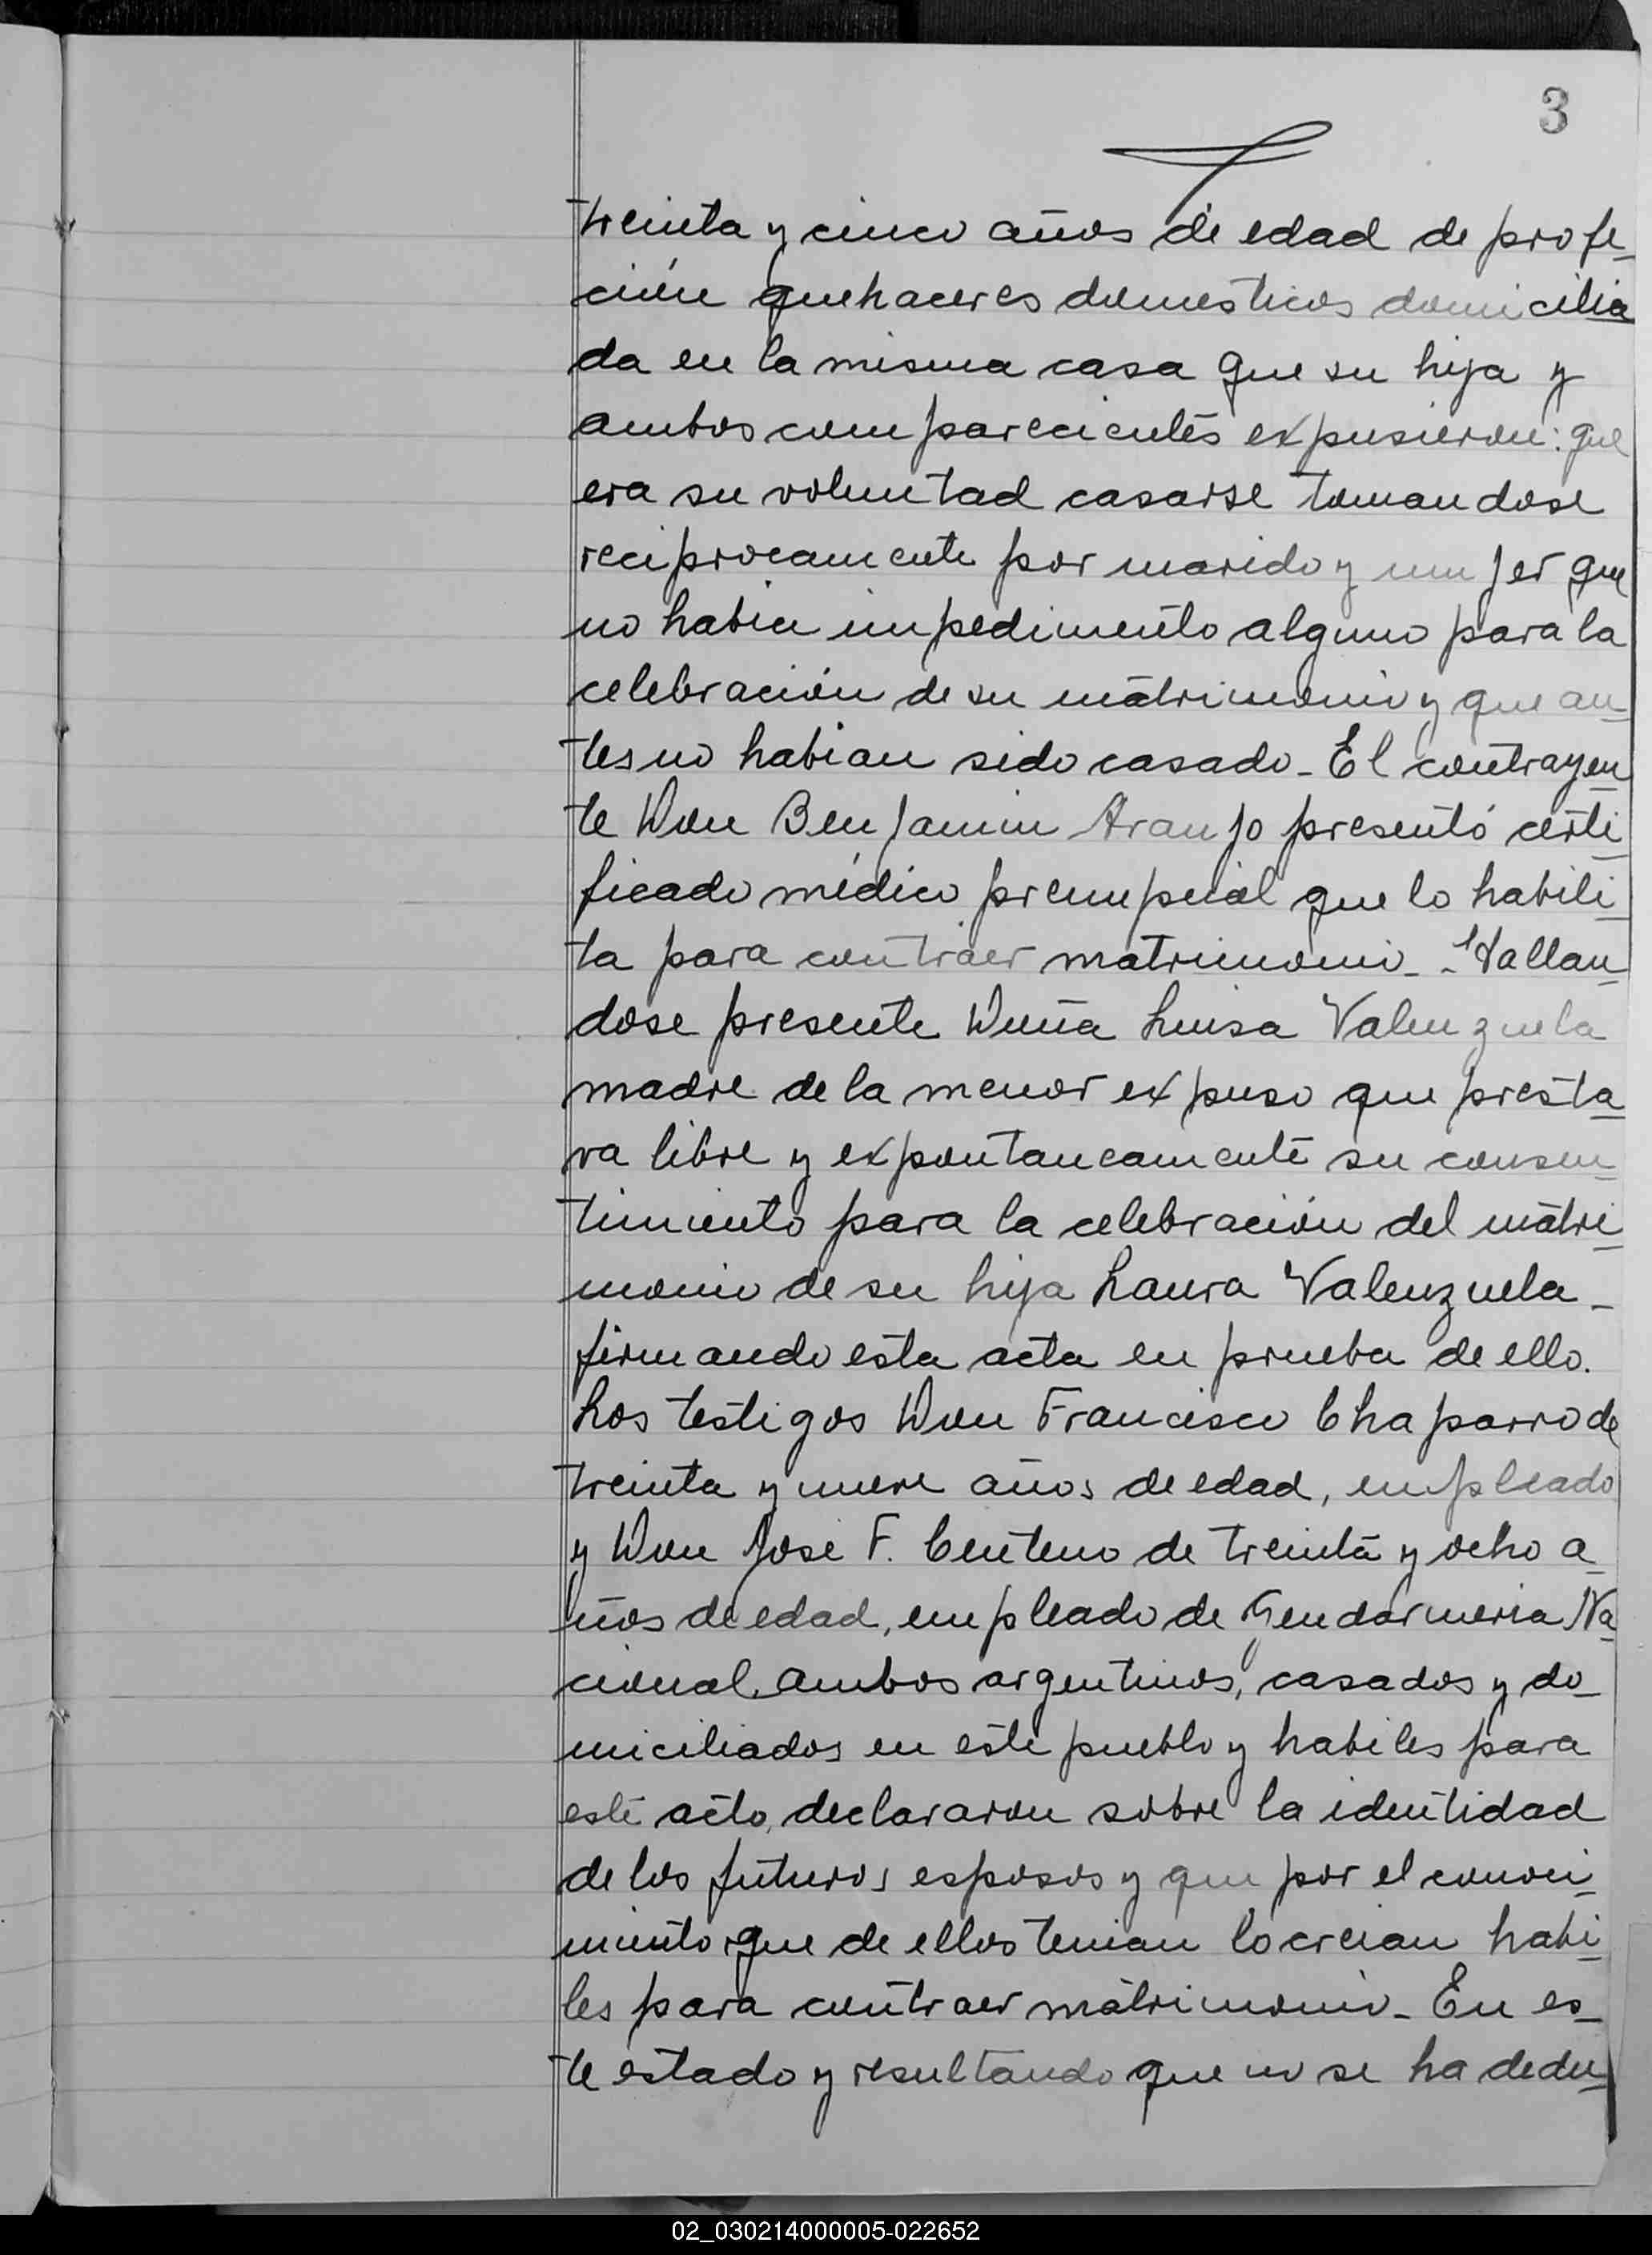 3
treinta y cinco años de edad de profe_
ción quehaceres domesticos domicilia
da en la misma casa que su hija y
ambos comparecientes expusieron: que
era su voluntad casarse tomandose
reciprocamente por marido y mujer que
no habia impedimento alguno para la
celebración de su matrimonio y que an_
tes no habian sido casado_ El contrayen
te Don Benjamin Araujo presentó certi_
ficado médico prenupcial que lo habili_
ta para contraer matrimonio_ _Hallan_
dose presente Doña Luisa Valenzuela
madre de la menor expuso que presta_
va libre y expontaneamente su consen_
timiento para la celebración del matri_
monio de su hija Laura Valenzuela_
firmando esta acta en prueba de ello.
Los testigos Don Francisco Chaparro de
treinta y nueve años de edad, empleado
y Don Jose F. Centeno de treinta y ocho a_
ños de edad, empleado de Gendarmeria Na_
cional, ambos argentinos, casados y do_
miciliados en este pueblo y habiles para
este acto, declararon sobre la identidad
de los futuros esposos y que por el conoci_
miento que de ellos tenian lo creian habi_
les para contraer matrimonio_ En es_
te estado y resultando que no se ha dedu_
02_030214000005-022652